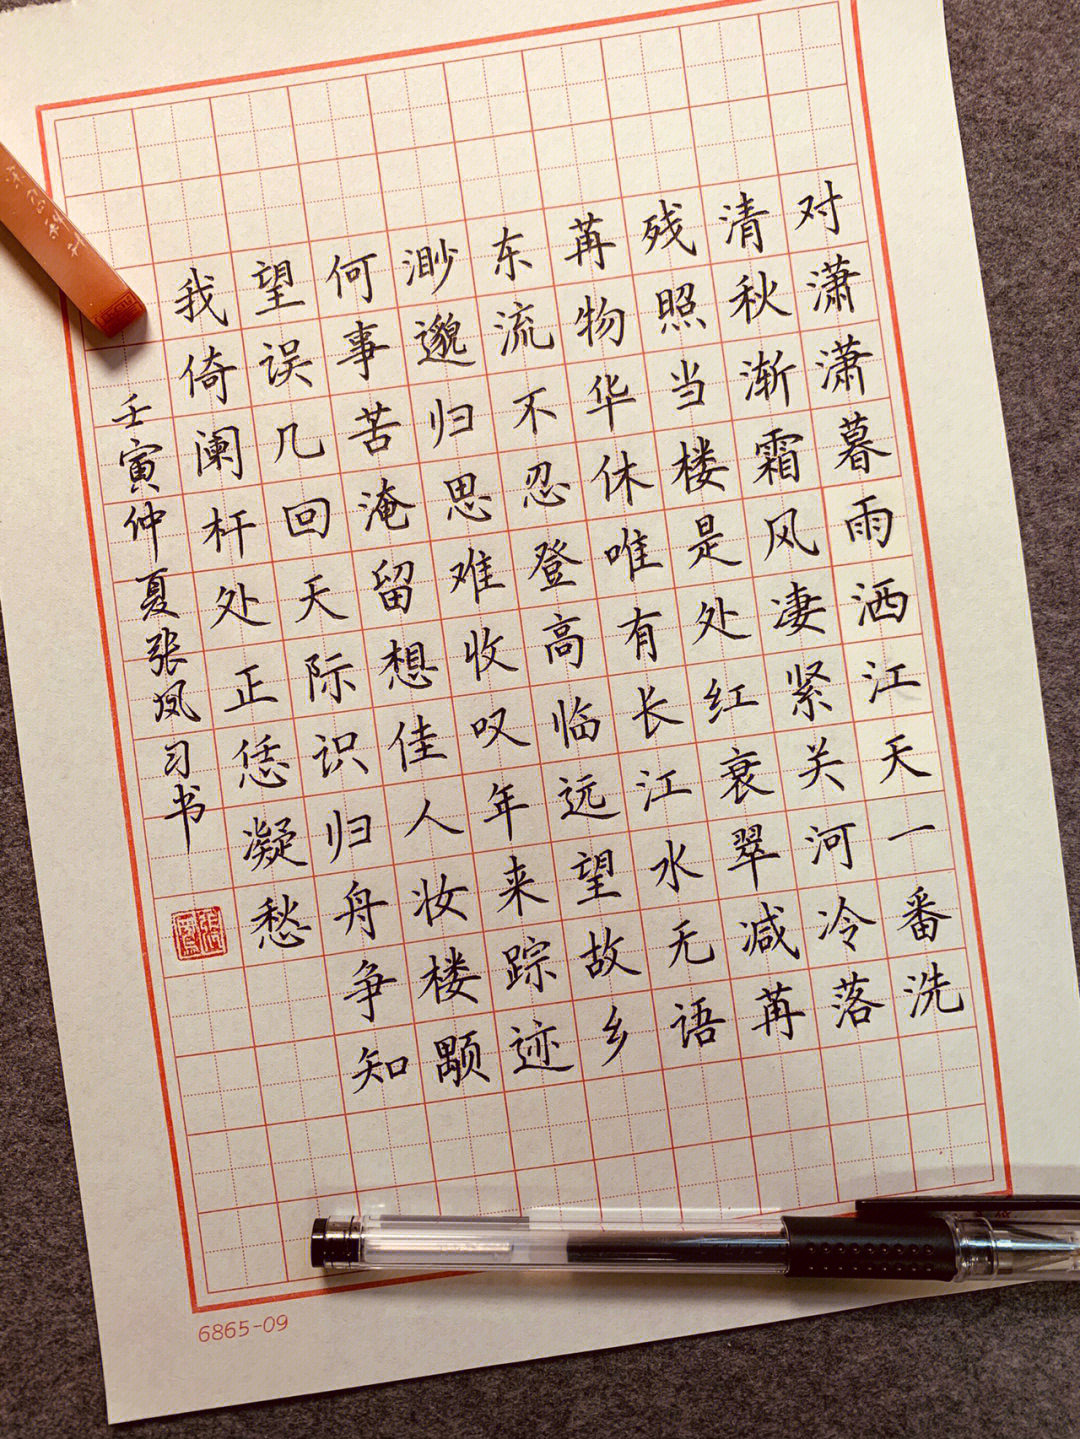 对潇潇暮雨洒江天一番洗
清秋渐霜风凄紧关河冷落
残照当楼是处红衰翠减苒
苒物华休唯有长江水无语
东流不忍登高临远望故乡
渺邈归思难收叹年来踪迹
何事苦淹留想佳人妆楼颙
望误几回天际识归舟争知
我倚阑杆处正恁凝愁
壬寅仲夏张凤习书
6865-09